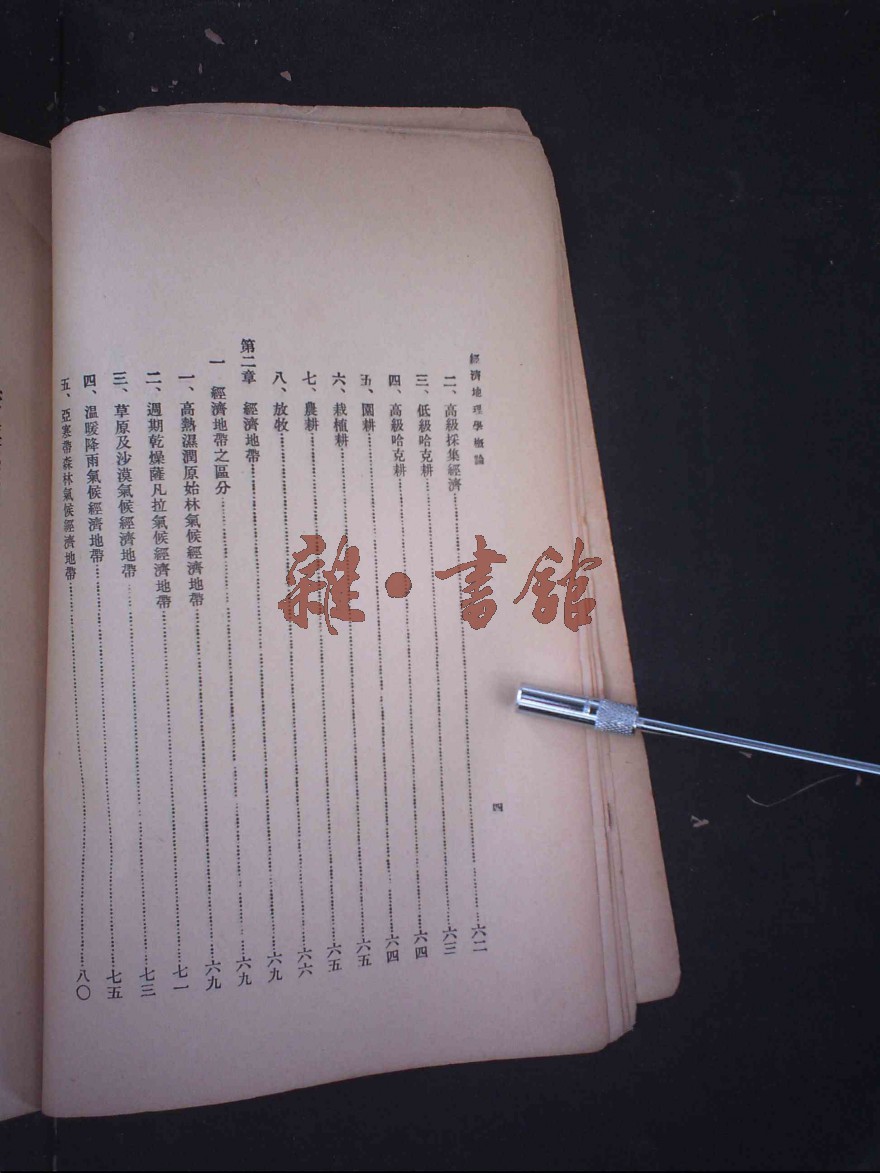 經濟地理學概論
四
二、高級採集經濟……六二
三、低級哈克耕……六三
四、高級哈克耕……六四
五、園耕……六四
六、栽植耕……六五
七、農耕……六五
八、放牧……六六
第二章 經濟地帶……六九
一 經濟地帶之區分……六九
一、高熱濕潤原始林氣候經濟地帶……六九
二、週期乾燥薩凡拉氣候經濟地帶……七一
三、草原及沙漠氣候經濟地帶……七三
四、温暖降雨氣候經濟地帶……七五
五、亞寒帶森林氣候經濟地帶……八〇
雜·書館